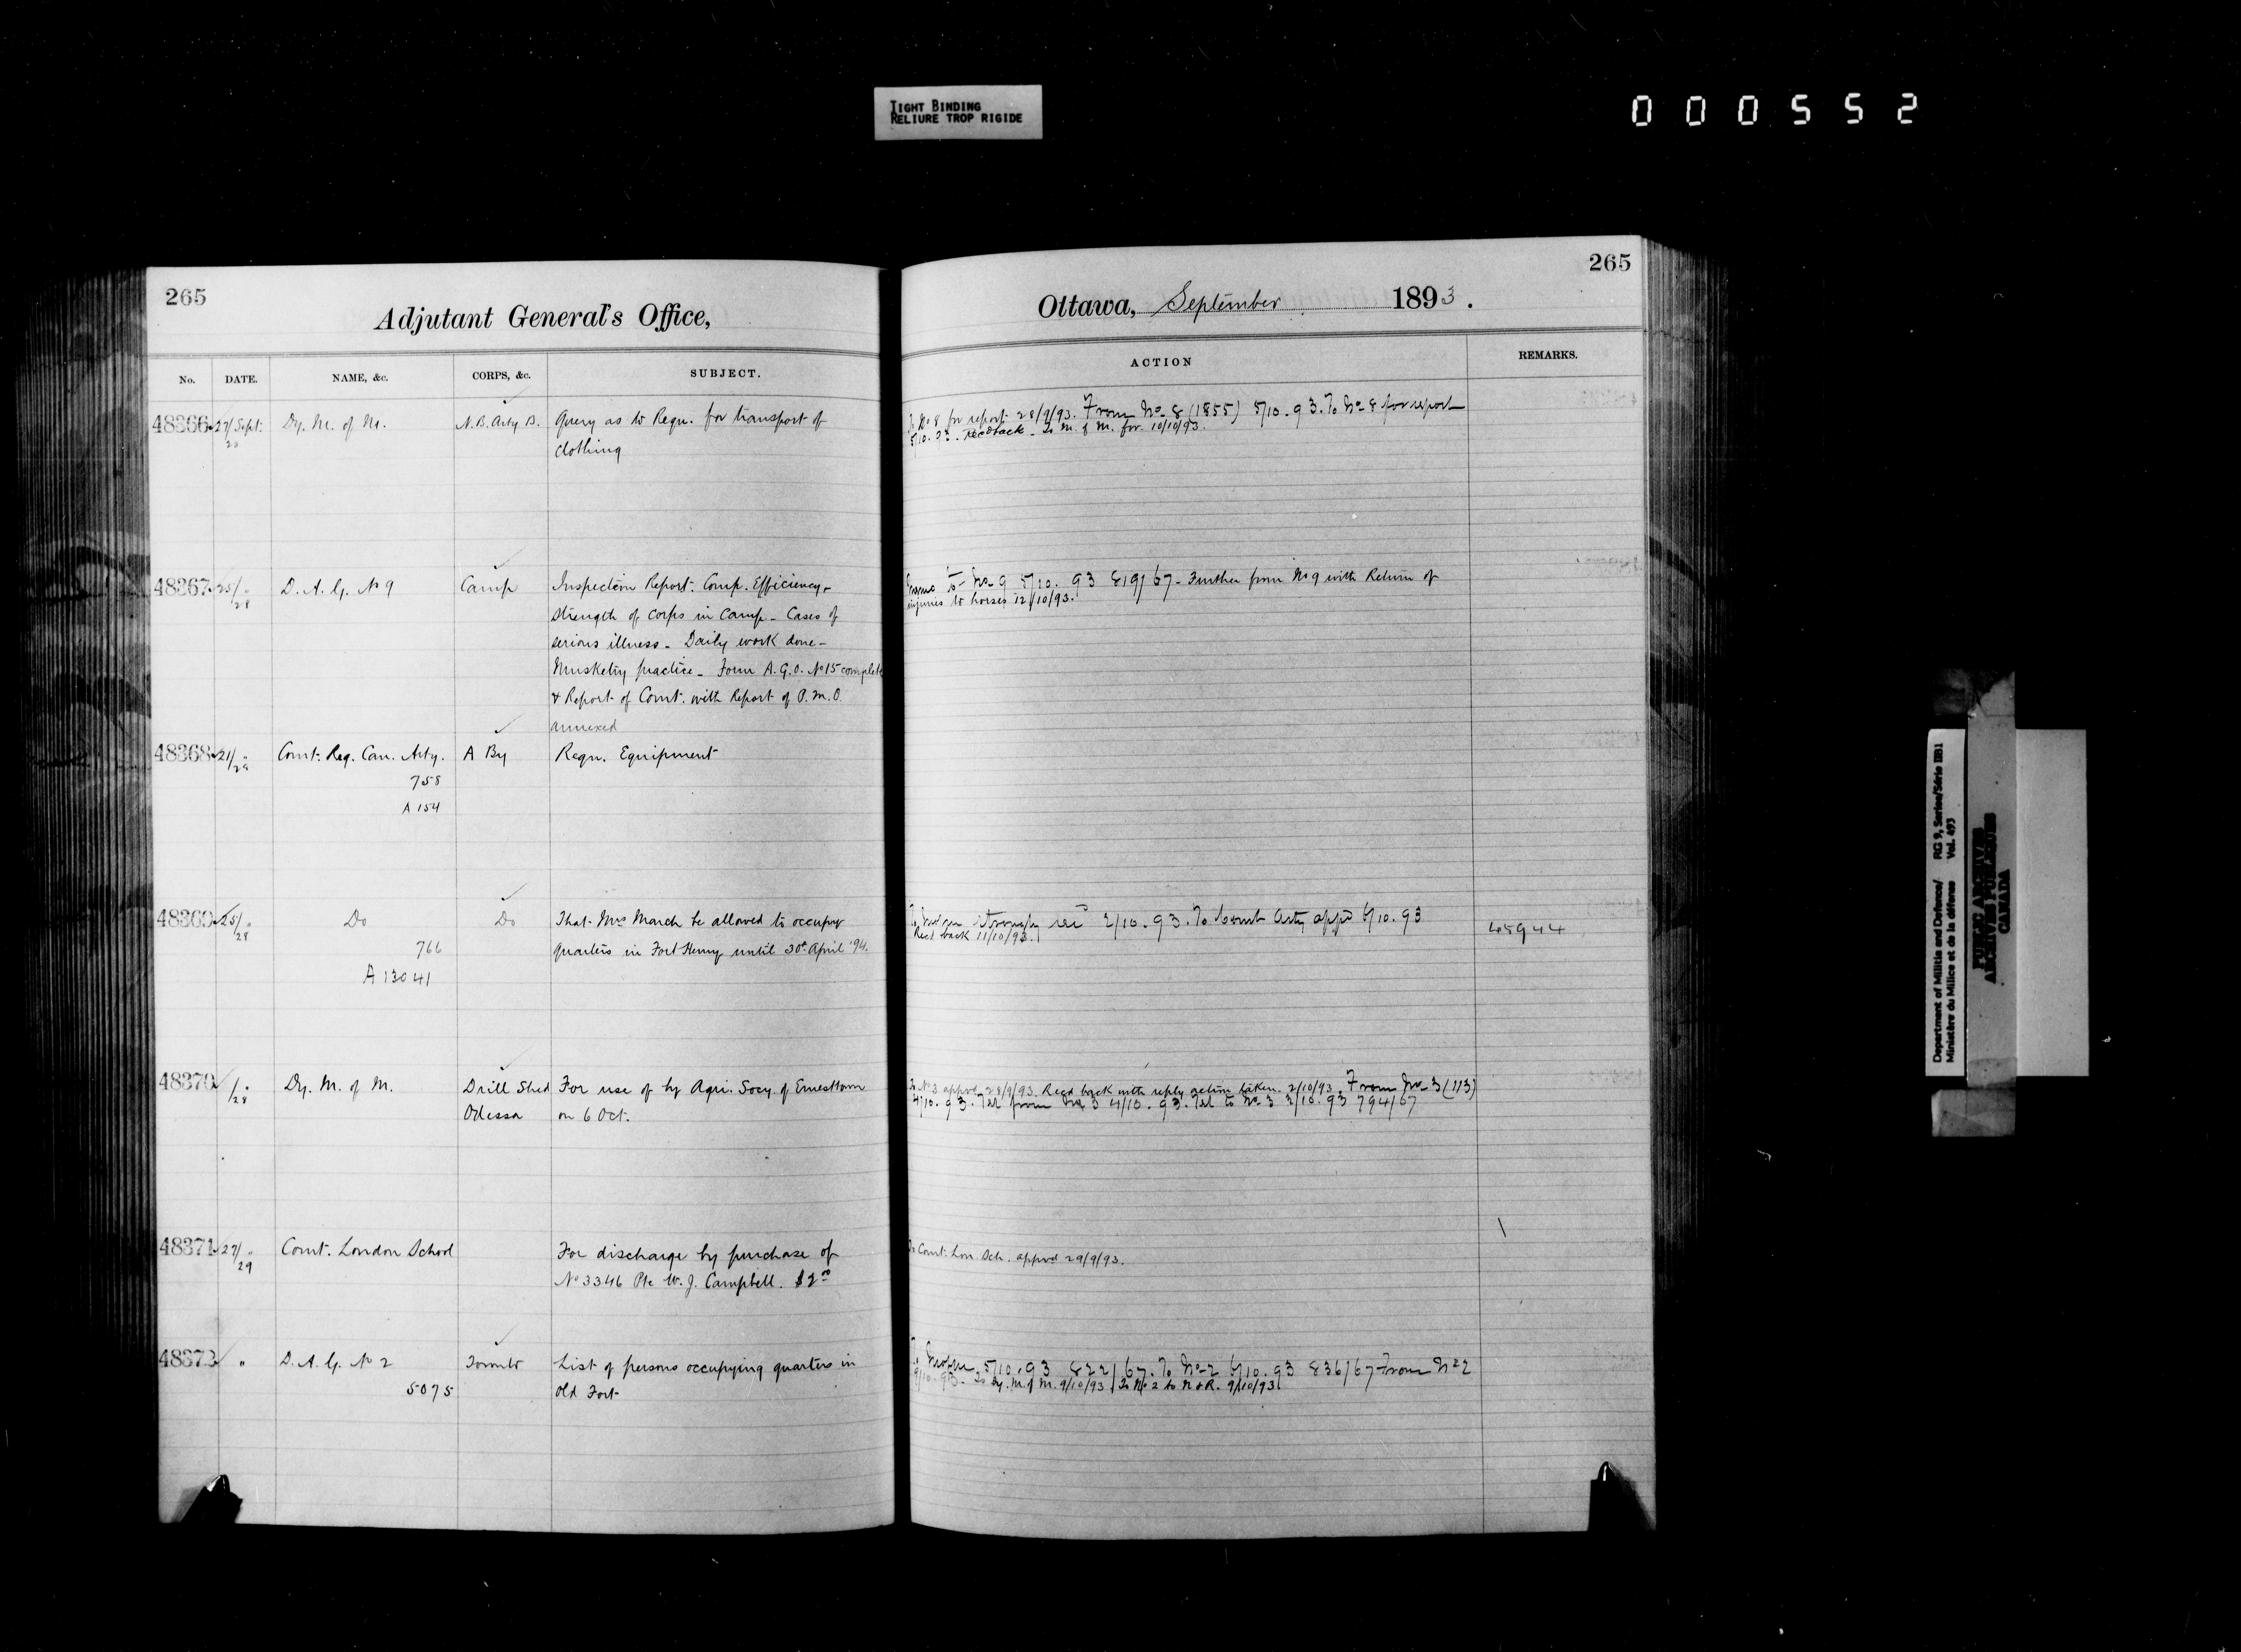 TIGHT BINDING
RELIURE TROP RIGIDE
000552
265
Adjutant General's Office,
No. DATE. NAME, &c. CORPS, &c. SUBJECT.
48366 27/Sept. Dy. M. of M. N.B. Arty B. Query as to Requ. for transport of
clothing
48367 25/28 " D. A. G. No 9 Camp Inspection Report. Comp. Efficiency-
Strength of corps in Camp - Cases of
serious illness - Daily work done -
Musketry practice - Form A.G.O. No 15 complete
& Report of Comt. with Report of P.M.O.
annexed
48368 21/ " Comt: Reg. Can. Arty. A By Requ. Equipment
758
A 154
48369 25/28 " Do Do That Mrs March be allowed to occupy
766 quarters in Fort Henry until 30th April '94.
A 13041
48370 /28 " Dy. M. of M. Drill Shed For use of by Agri. Socy. of Ernesttown
Odessa on 6 Oct.
48371 27/29 " Comt. London School For discharge by purchase of
No 3346 Pte W. J. Campbell.
48372 " D. A. G. No 2 Toronto List of persons occupying quarters in
5075 Old Fort
265
Ottawa, September 1893.
ACTION REMARKS.
To No 8 for report 28/9/93. From No 8 (1855) 5/10.93. To No 8 for report
5/10.93. Recd back - To M. of M. for 10/10/93.
to No 9 5/10.93 819/67 - Further from No 9 with Return of
injuries to horses 12/10/93.
strongly 2/10.93. To Comt Arty appd 6/10.93 45944
Recd back 11/10/93.
To No 3 approd 28/9/93. Recd back with reply action taken. 2/10/93. From No 3 (113)
4/10.93. Tel from No 3 4/10.93. Tel to No 3 2/10.93 794/67
To Comt. Lon Sch. approd 29/9/93.
5/10.93 822/67. To No 2 6/10.93 836/67 From No 2
9/10.93. To Dy. M. of M. 9/10/93. To No 2 to N & R. 9/10/93
Department of Militia and Defence/ RG 9, Series/Série IIB1
Ministère du Milice et de la défense Vol. 493
PUBLIC ARCHIVES
ARCHIVES PUBLIQUES
CANADA